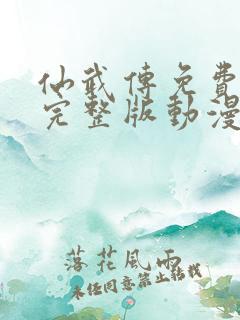 仙武傳免費
完整版動漫
落花風雨
未经同意禁止转载